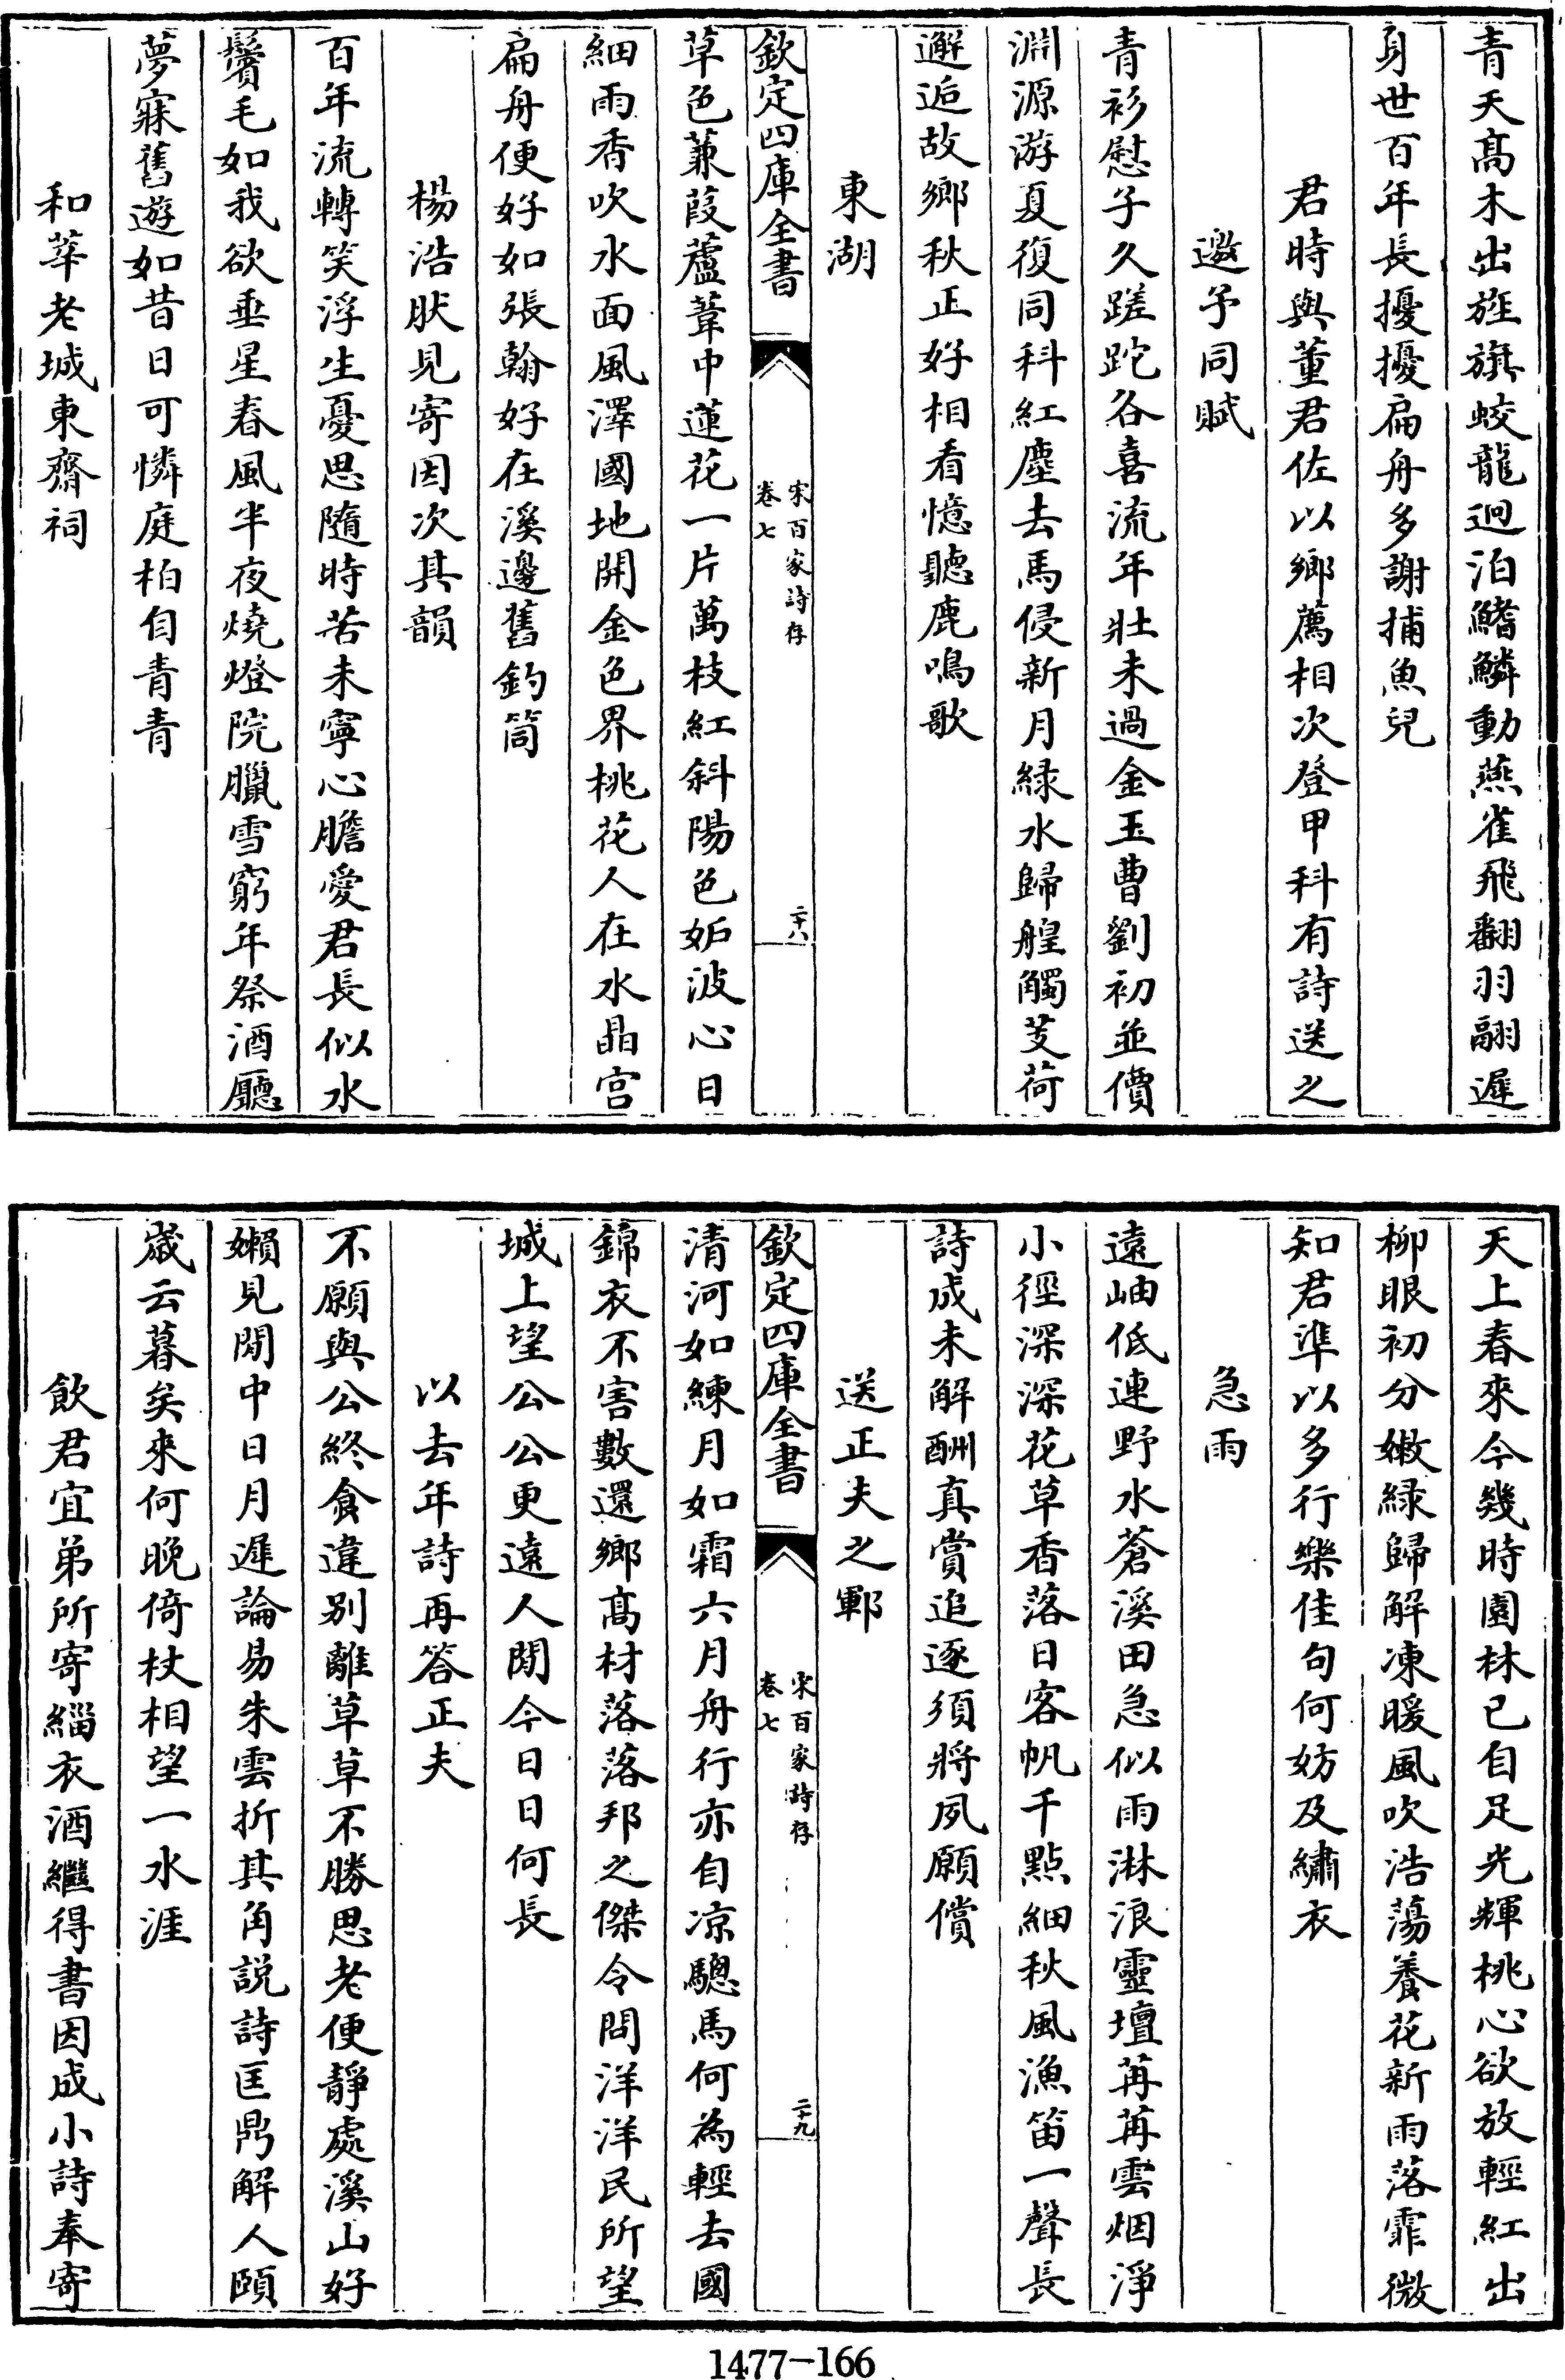 青天髙木出旌旗蛟龍迴泊鰭鱗動燕雀飛翻羽翮遲
身世百年長擾擾扁舟多謝捕魚兒
君時與董君佐以鄉薦相次登甲科有詩送之
邀予同賦
青衫慰子久蹉跎各喜流年壯未過金玉曹劉初並價
淵源游夏復同科紅塵去馬侵新月緑水歸艎觸芰荷
邂逅故鄉秋正好相看憶聽鹿鳴歌
東湖
欽定四庫全書
宋百家詩存
卷七
二十八
草色蒹葭蘆葦中蓮花一片萬枝紅斜陽色妬波心日
細雨香吹水面風澤國地開金色界桃花人在水晶宫
扁舟便好如張翰好在溪邊舊釣筒
楊浩肰見寄因次其韻
百年流轉笑浮生憂思隨時苦未寧心膽愛君長似水
鬢毛如我欲垂星春風半夜燒燈院臘雪窮年祭酒廳
夢寐舊遊如昔日可憐庭柏自青青
和莘老城東齋祠
天上春來今幾時園林已自足光輝桃心欲放輕紅出
柳眼初分嫩緑歸解凍暖風吹浩蕩養花新雨落霏微
知君準以多行樂佳句何妨及繡衣
急雨
遠岫低連野水蒼溪田急似雨淋浪靈壇苒苒雲烟淨
小徑深深花草香落日客帆千點細秋風漁笛一聲長
詩成未解酬真賞追逐須將夙願償
送正夫之鄆
欽定四庫全書
宋百家詩存
卷七
二十九
清河如練月如霜六月舟行亦自凉驄馬何為輕去國
錦衣不害數還鄉髙材落落邦之傑令問洋洋民所望
城上望公公更遠人閒今日日何長
以去年詩再答正夫
不願與公終食違别離草草不勝思老便靜處溪山好
嬾見閒中日月遲論易朱雲折其角説詩匡鼎解人頤
歲云暮矣來何晚倚杖相望一水涯
飲君宜弟所寄緇衣酒繼得書因成小詩奉寄
1477-166